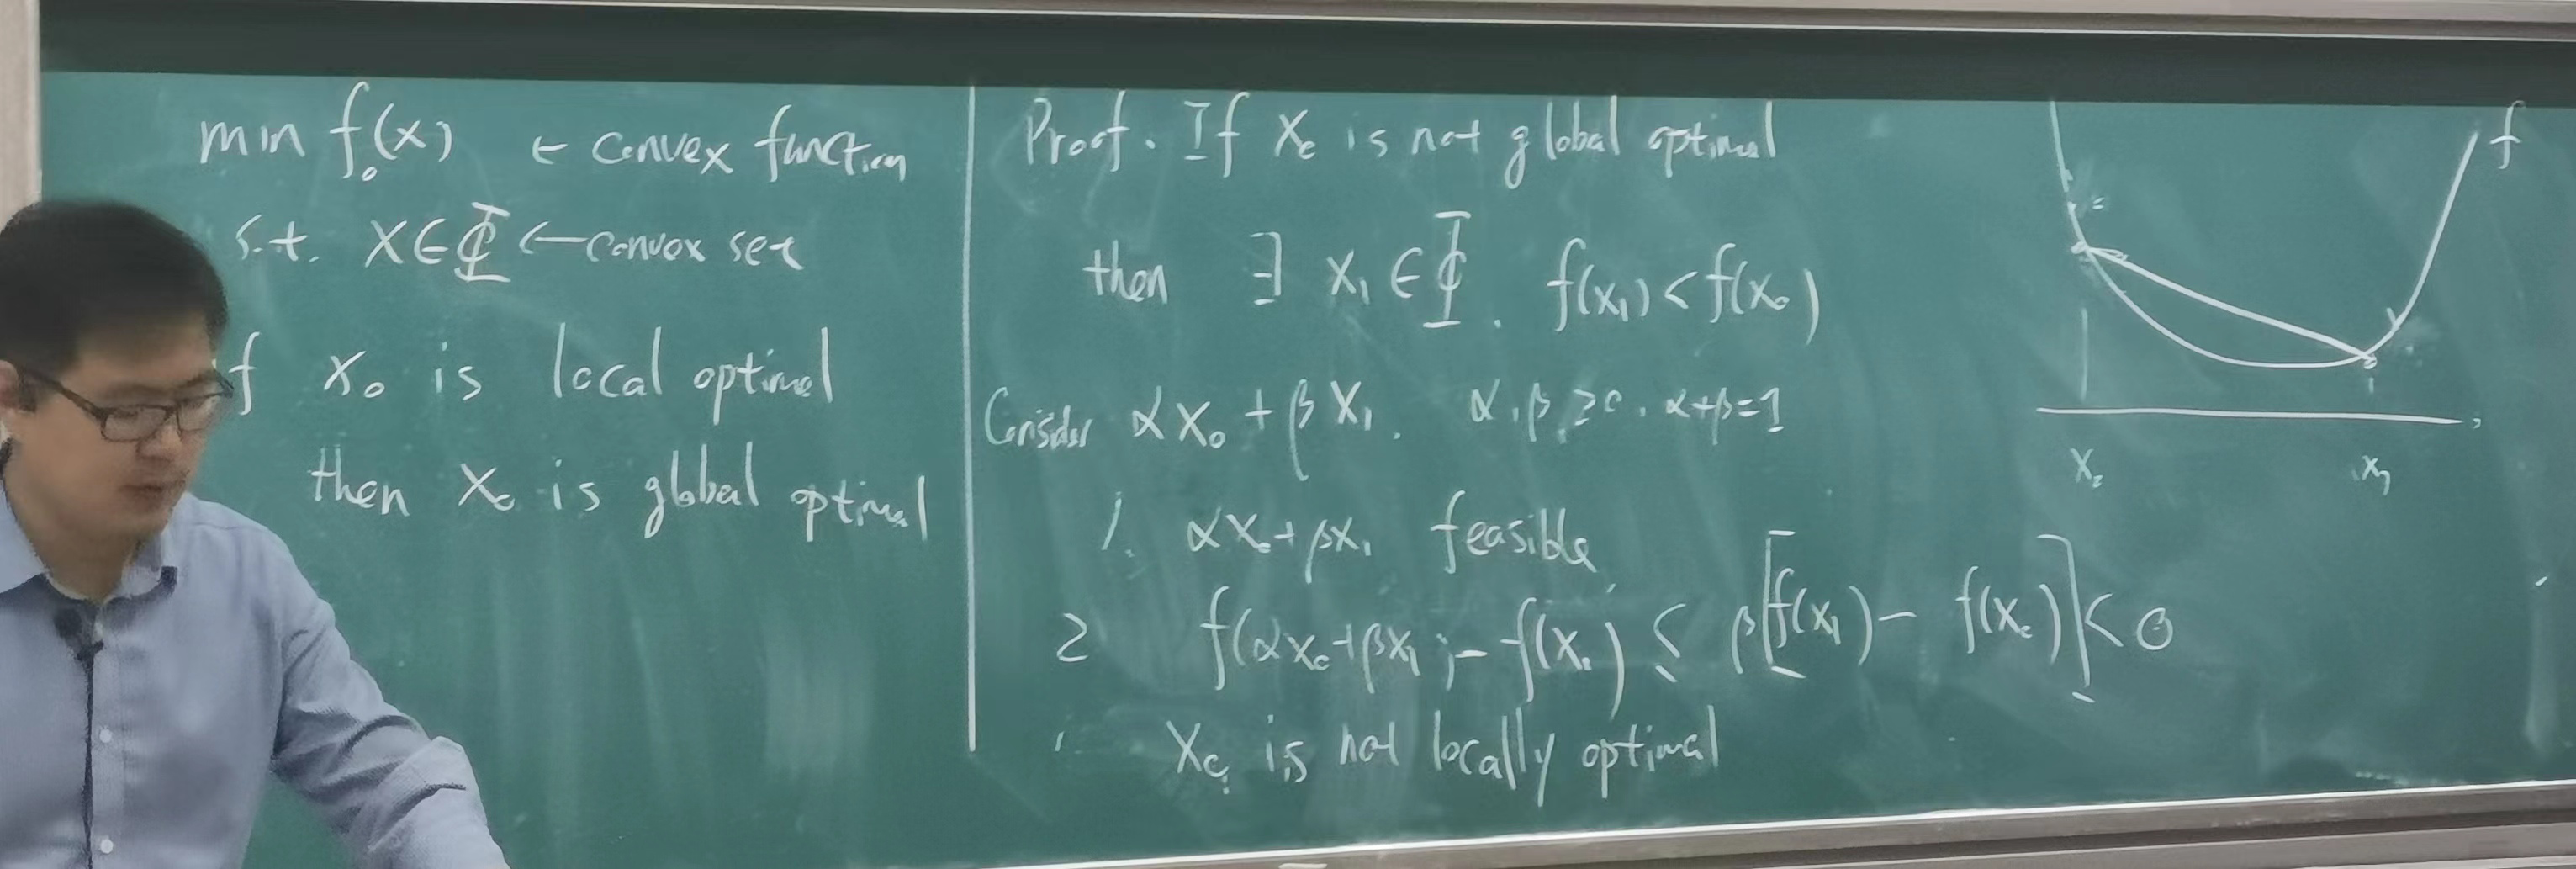 min f₀(x) ← convex function
s.t. x∈Φ ← convex set
f x₀ is local optimal
then x₀ is global optimal
Proof. If x₀ is not global optimal
then ∃ x₁ ∈ Φ. f(x₁) < f(x₀)
Consider αx₀ + βx₁. α, β ≥ 0, α+β=1
1. αx₀+βx₁ feasible
2 f(αx₀+βx₁) - f(x₀) ≤ β[f(x₁) - f(x₀)] < 0
x₀ is not locally optimal
f
x₀ x₁